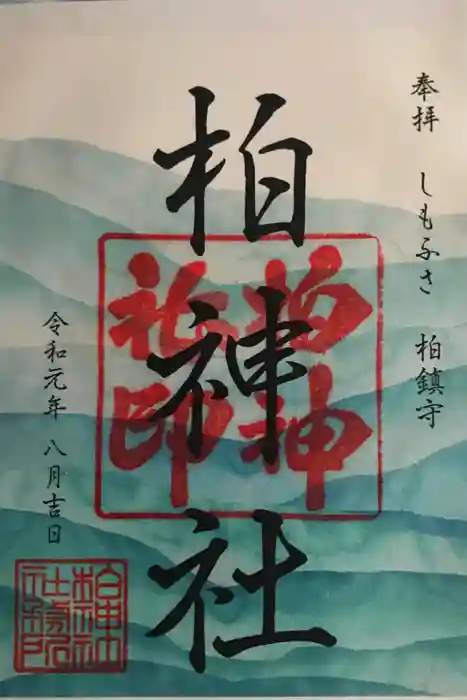 奉拝 しもふさ 柏鎮守
柏神社
柏神
社印
令和元年 八月吉日
柏神社
社務所
之印